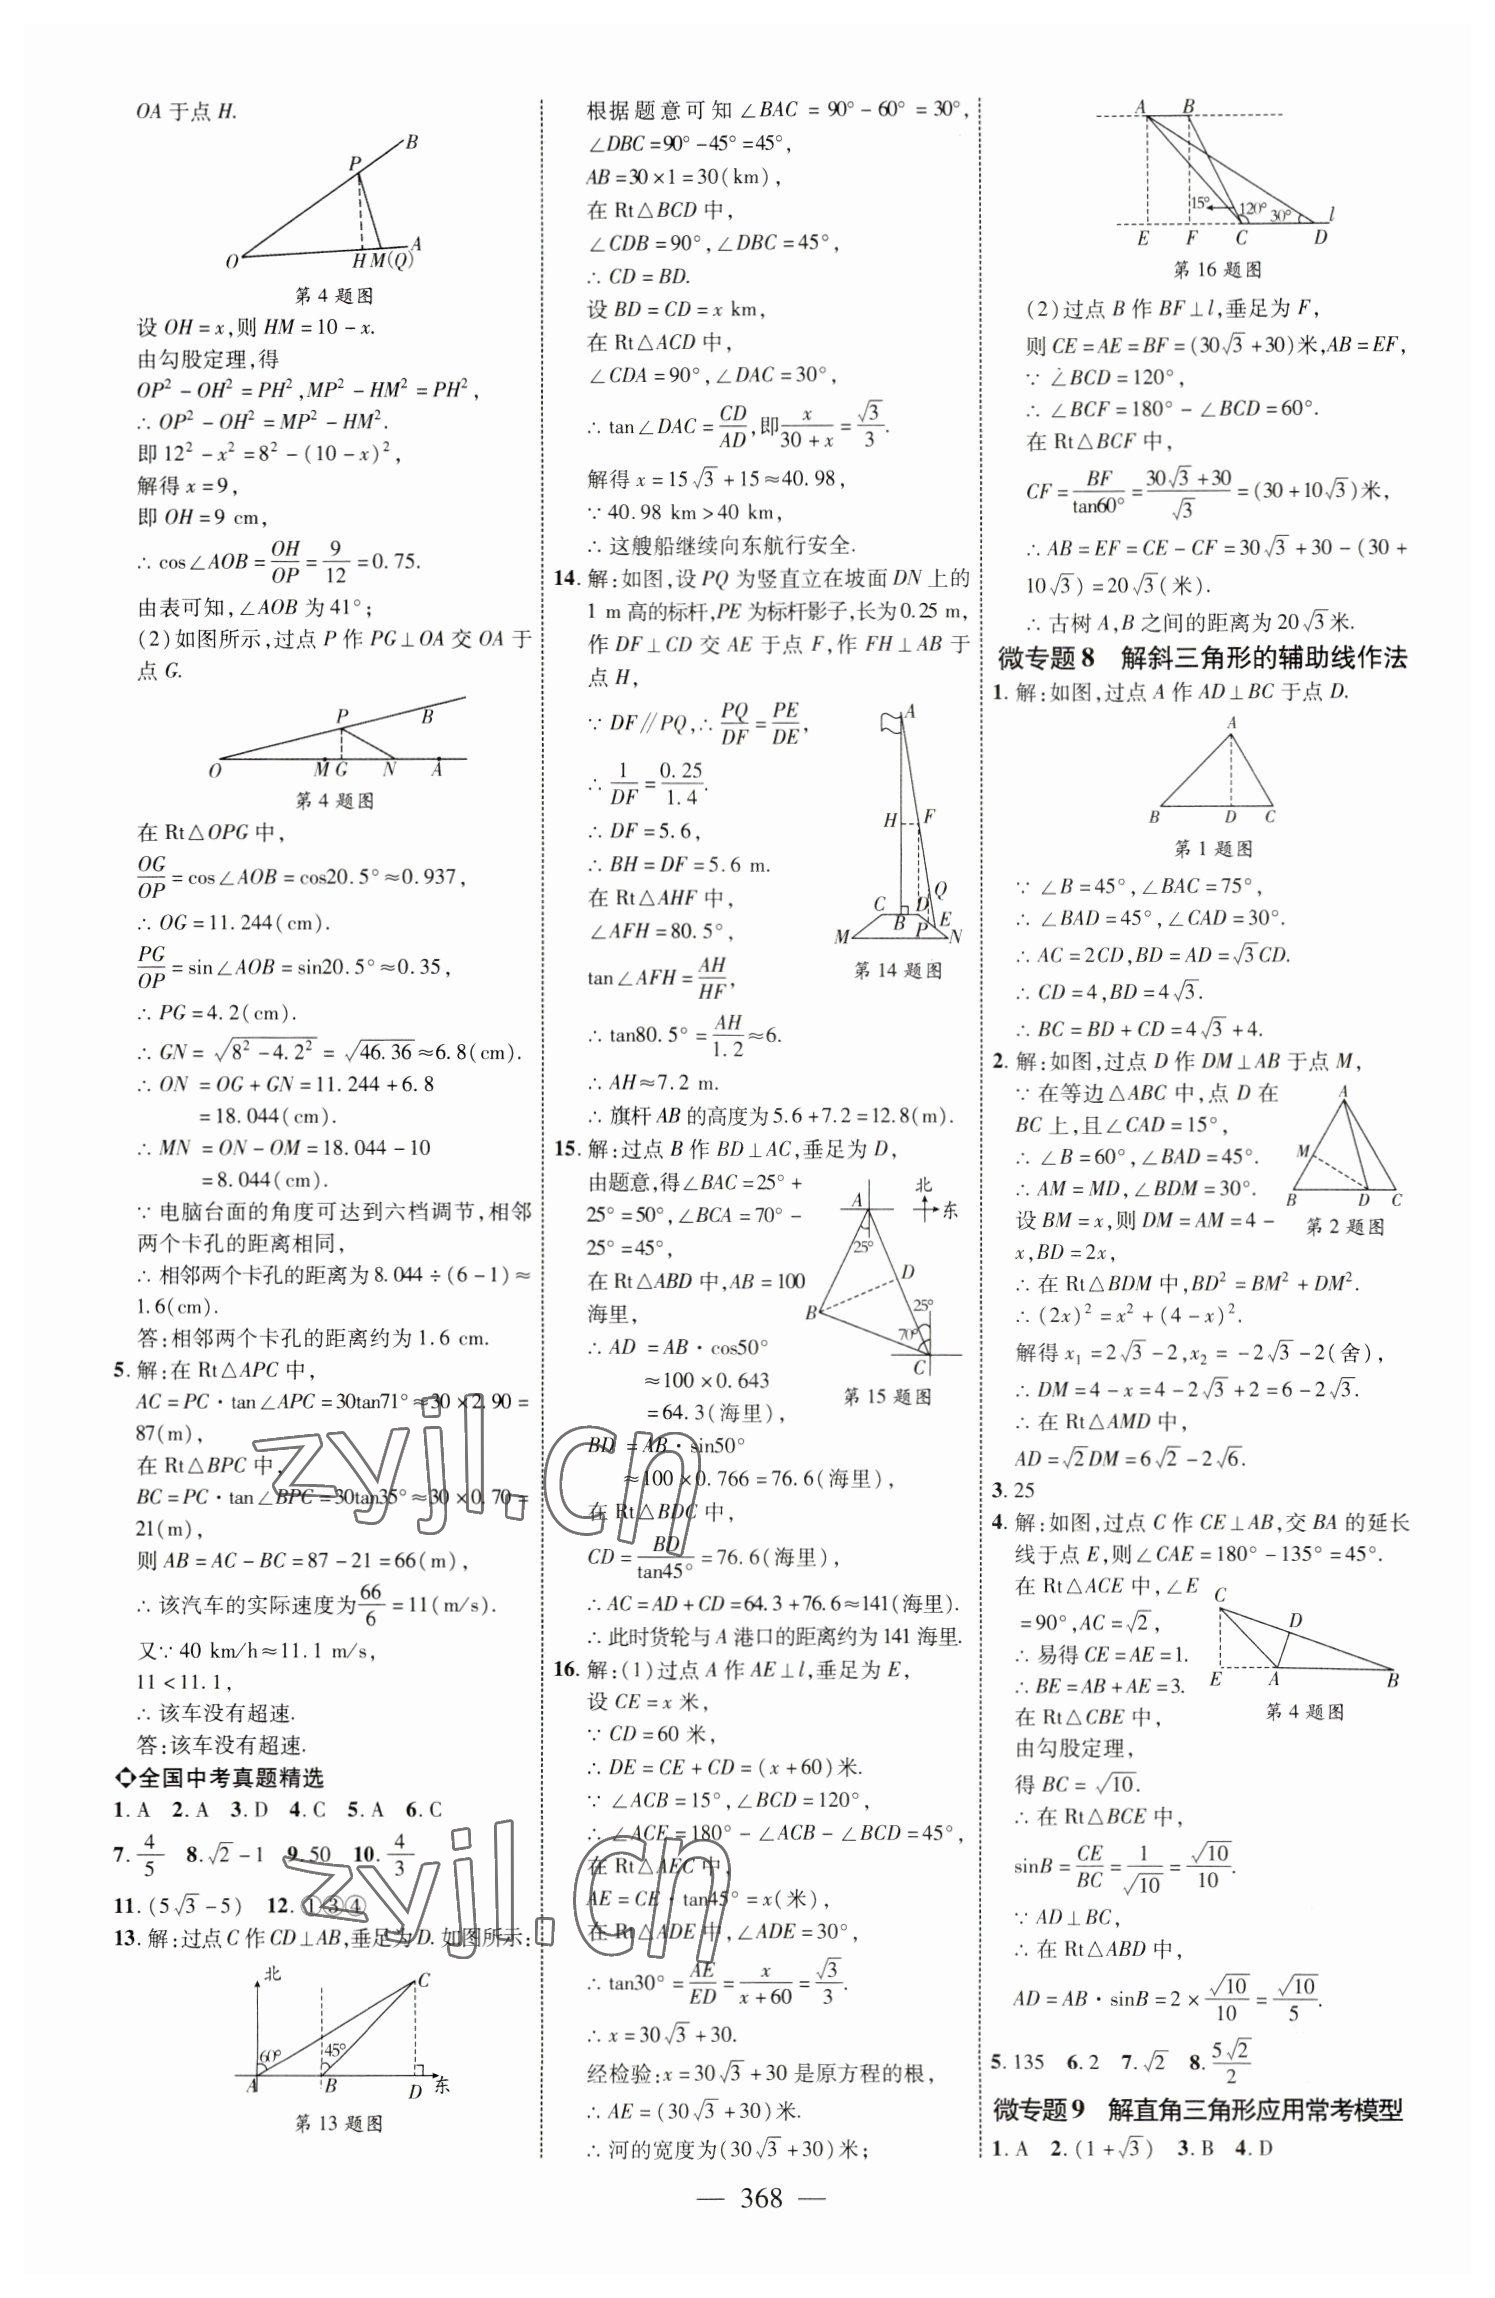 OA于点H.
B
P
O
H M(Q)
A
第4题图
设OH=x,则HM=10-x.
由勾股定理,得
OP²-OH²=PH²,MP²-HM²=PH²,
∴OP²-OH²=MP²-HM².
即12²-x²=8²-(10-x)²,
解得x=9,
即OH=9 cm,
∴cos∠AOB=OH/OP=9/12=0.75.
由表可知,∠AOB为41°;
(2)如图所示,过点P作PG⊥OA交OA于
点G.
P
B
O
M G N A
第4题图
在Rt△OPG中,
OG/OP=cos∠AOB=cos20.5°≈0.937,
∴OG=11.244(cm).
PG/OP=sin∠AOB=sin20.5°≈0.35,
∴PG=4.2(cm).
∴GN=√(8²-4.2²)=√46.36≈6.8(cm).
∴ON=OG+GN=11.244+6.8
=18.044(cm).
∴MN=ON-OM=18.044-10
=8.044(cm).
∵电脑台面的角度可达到六档调节,相邻
两个卡孔的距离相同,
∴相邻两个卡孔的距离为8.044÷(6-1)≈
1.6(cm).
答:相邻两个卡孔的距离约为1.6 cm.
5.解:在Rt△APC中,
AC=PC·tan∠APC=30tan71°≈30×2.90=
87(m),
在Rt△BPC中,
BC=PC·tan∠BPC=30tan35°≈30×0.70=
21(m),
则AB=AC-BC=87-21=66(m),
∴该汽车的实际速度为66/6=11(m/s).
又∵40 km/h≈11.1 m/s,
11<11.1,
∴该车没有超速.
答:该车没有超速.
全国中考真题精选
1.A 2.A 3.D 4.C 5.A 6.C
7.4/5 8.√2-1 9.50 10.4/3
11.(5√3-5) 12.①③④
13.解:过点C作CD⊥AB,垂足为D.如图所示:
北
C
60°
45°
A B D 东
第13题图
根据题意可知∠BAC=90°-60°=30°,
∠DBC=90°-45°=45°,
AB=30×1=30(km),
在Rt△BCD中,
∠CDB=90°,∠DBC=45°,
∴CD=BD.
设BD=CD=x km,
在Rt△ACD中,
∠CDA=90°,∠DAC=30°,
∴tan∠DAC=CD/AD,即x/(30+x)=√3/3.
解得x=15√3+15≈40.98,
∵40.98 km>40 km,
∴这艘船继续向东航行安全.
14.解:如图,设PQ为竖直立在坡面DN上的
1 m高的标杆,PE为标杆影子,长为0.25 m,
作DF⊥CD交AE于点F,作FH⊥AB于
点H,
∵DF∥PQ,∴PQ/DF=PE/DE,
∴1/DF=0.25/1.4.
∴DF=5.6,
∴BH=DF=5.6 m.
在Rt△AHF中,
∠AFH=80.5°,
tan∠AFH=AH/HF,
∴tan80.5°=AH/1.2≈6.
∴AH≈7.2 m.
∴旗杆AB的高度为5.6+7.2=12.8(m).
A
H F
Q
C D
B E
M P N
第14题图
15.解:过点B作BD⊥AC,垂足为D,
由题意,得∠BAC=25°+
25°=50°,∠BCA=70°-
25°=45°,
在Rt△ABD中,AB=100
海里,
∴AD=AB·cos50°
≈100×0.643
=64.3(海里),
BD=AB·sin50°
≈100×0.766=76.6(海里),
在Rt△BDC中,
CD=BD/tan45°=76.6(海里),
∴AC=AD+CD=64.3+76.6≈141(海里).
∴此时货轮与A港口的距离约为141海里.
北
A
东
25°
D
B
25°
70°
C
第15题图
16.解:(1)过点A作AE⊥l,垂足为E,
设CE=x米,
∵CD=60米,
∴DE=CE+CD=(x+60)米.
∵∠ACB=15°,∠BCD=120°,
∴∠ACE=180°-∠ACB-∠BCD=45°,
在Rt△AEC中,
AE=CE·tan45°=x(米),
在Rt△ADE中,∠ADE=30°,
∴tan30°=AE/ED=x/(x+60)=√3/3.
∴x=30√3+30.
经检验:x=30√3+30是原方程的根,
∴AE=(30√3+30)米.
∴河的宽度为(30√3+30)米;
A B
15° 120° 30° l
E F C D
第16题图
(2)过点B作BF⊥l,垂足为F,
则CE=AE=BF=(30√3+30)米,AB=EF,
∵∠BCD=120°,
∴∠BCF=180°-∠BCD=60°.
在Rt△BCF中,
CF=BF/tan60°=(30√3+30)/√3=(30+10√3)米,
∴AB=EF=CE-CF=30√3+30-(30+
10√3)=20√3(米).
∴古树A,B之间的距离为20√3米.
微专题8 解斜三角形的辅助线作法
1.解:如图,过点A作AD⊥BC于点D.
A
B D C
第1题图
∵∠B=45°,∠BAC=75°,
∴∠BAD=45°,∠CAD=30°.
∴AC=2CD,BD=AD=√3CD.
∴CD=4,BD=4√3.
∴BC=BD+CD=4√3+4.
2.解:如图,过点D作DM⊥AB于点M,
∵在等边△ABC中,点D在
BC上,且∠CAD=15°,
∴∠B=60°,∠BAD=45°.
∴AM=MD,∠BDM=30°.
设BM=x,则DM=AM=4-
x,BD=2x,
∴在Rt△BDM中,BD²=BM²+DM².
∴(2x)²=x²+(4-x)².
解得x₁=2√3-2,x₂=-2√3-2(舍),
∴DM=4-x=4-2√3+2=6-2√3.
∴在Rt△AMD中,
AD=√2DM=6√2-2√6.
A
M
B D C
第2题图
3.25
4.解:如图,过点C作CE⊥AB,交BA的延长
线于点E,则∠CAE=180°-135°=45°.
在Rt△ACE中,∠E
=90°,AC=√2,
∴易得CE=AE=1.
∴BE=AB+AE=3.
在Rt△CBE中,
由勾股定理,
得BC=√10.
∴在Rt△BCE中,
sinB=CE/BC=1/√10=√10/10.
∵AD⊥BC,
∴在Rt△ABD中,
AD=AB·sinB=2×√10/10=√10/5.
C
D
E A B
第4题图
5.135 6.2 7.√2 8.5√2/2
微专题9 解直角三角形应用常考模型
1.A 2.(1+√3) 3.B 4.D
— 368 —
zyjl.cn
zyjl.cn